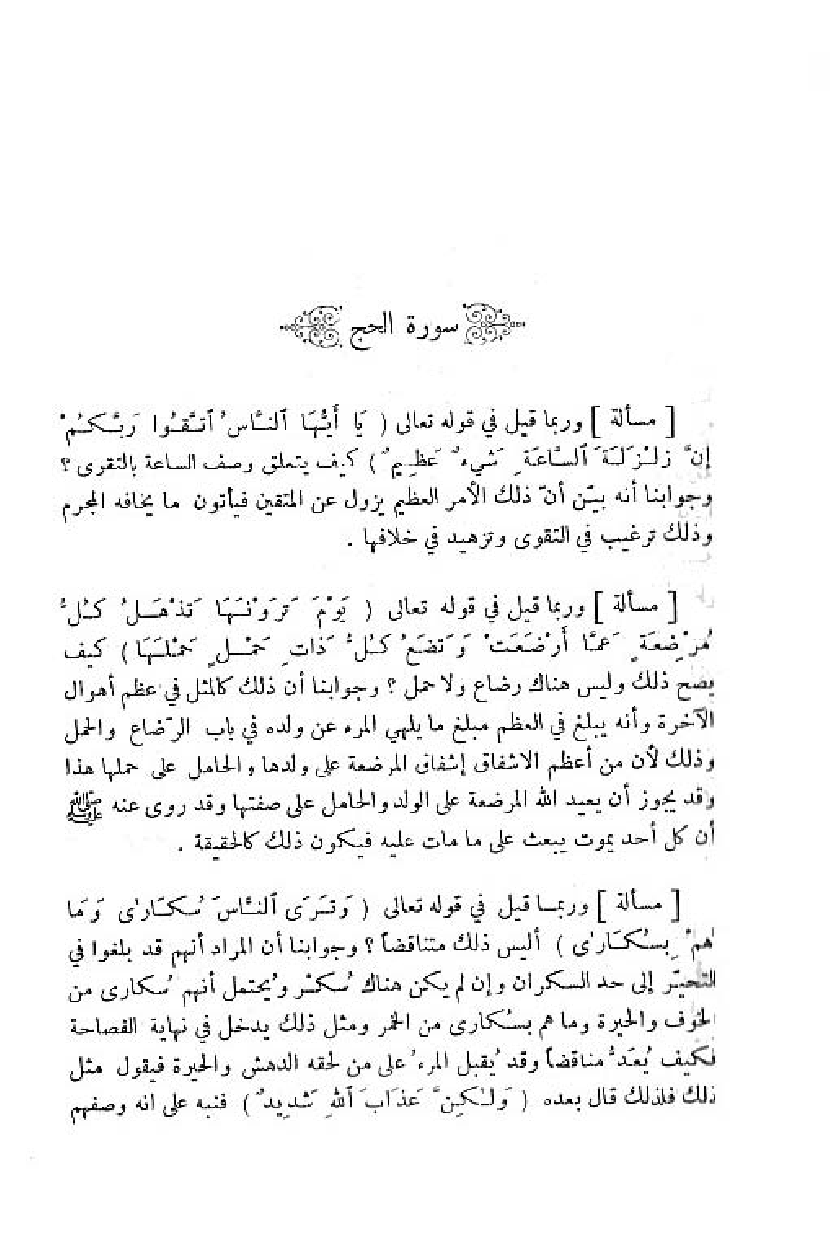 سورة الحج
[ مسألة ] وربما قيل في قوله تعالى ( يَا أَيُّهَا ٱلنَّاسُ ٱتَّقُوا رَبَّكُمْ
إِنَّ زَلْزَلَةَ ٱلسَّاعَةِ شَيْءٌ عَظِيمٌ ) كيف يتعلق وصف الساعة بالتقوى ؟
وجوابنا أنه بيّن أنّ ذلك الأمر العظيم يزول عن المتقين فيأتون ما يخافه المجرم
وذلك ترغيب في التقوى وتزهيد في خلافها .
[ مسألة ] وربما قيل في قوله تعالى ( يَوْمَ تَرَوْنَهَا تَذْهَلُ كُلُّ
مُرْضِعَةٍ عَمَّا أَرْضَعَتْ وَتَضَعُ كُلُّ ذَاتِ حَمْلٍ حَمْلَهَا ) كيف
يصح ذلك وليس هناك رضاع ولا حمل ؟ وجوابنا أن ذلك كالمثل في عظم أهوال
الآخرة وأنه يبلغ في العظم مبلغ ما يلهي المرء عن ولده في باب الرّضاع والحمل
وذلك لأن من أعظم الاشفاق إشفاق المرضعة على ولدها والحامل على حملها هذا
وقد يجوز أن يعيد الله المرضعة على الولد والحامل على صفتها وقد روى عنه ﷺ
أن كل أحد يموت يبعث على ما مات عليه فيكون ذلك كالحقيقة .
[ مسألة ] وربما قيل في قوله تعالى ( وَتَرَى ٱلنَّاسَ سُكَارٰى وَمَا
هُمْ بِسُكَارٰى ) أليس ذلك متناقضاً ؟ وجوابنا أن المراد أنهم قد بلغوا في
التحيّر إلى حد السكران وإن لم يكن هناك سُكْر ويُحتمل أنهم سُكارى من
الخوف والحيرة وما هم بسُكارى من الخمر ومثل ذلك يدخل في نهاية الفصاحة
فكيف يُعَدُّ مناقضاً وقد يُقبل المرءُ على من لحقه الدهش والحيرة فيقول مثل
ذلك فلذلك قال بعده ( وَلٰكِنَّ عَذَابَ ٱللهِ شَدِيدٌ ) فنبه على انه وصفهم